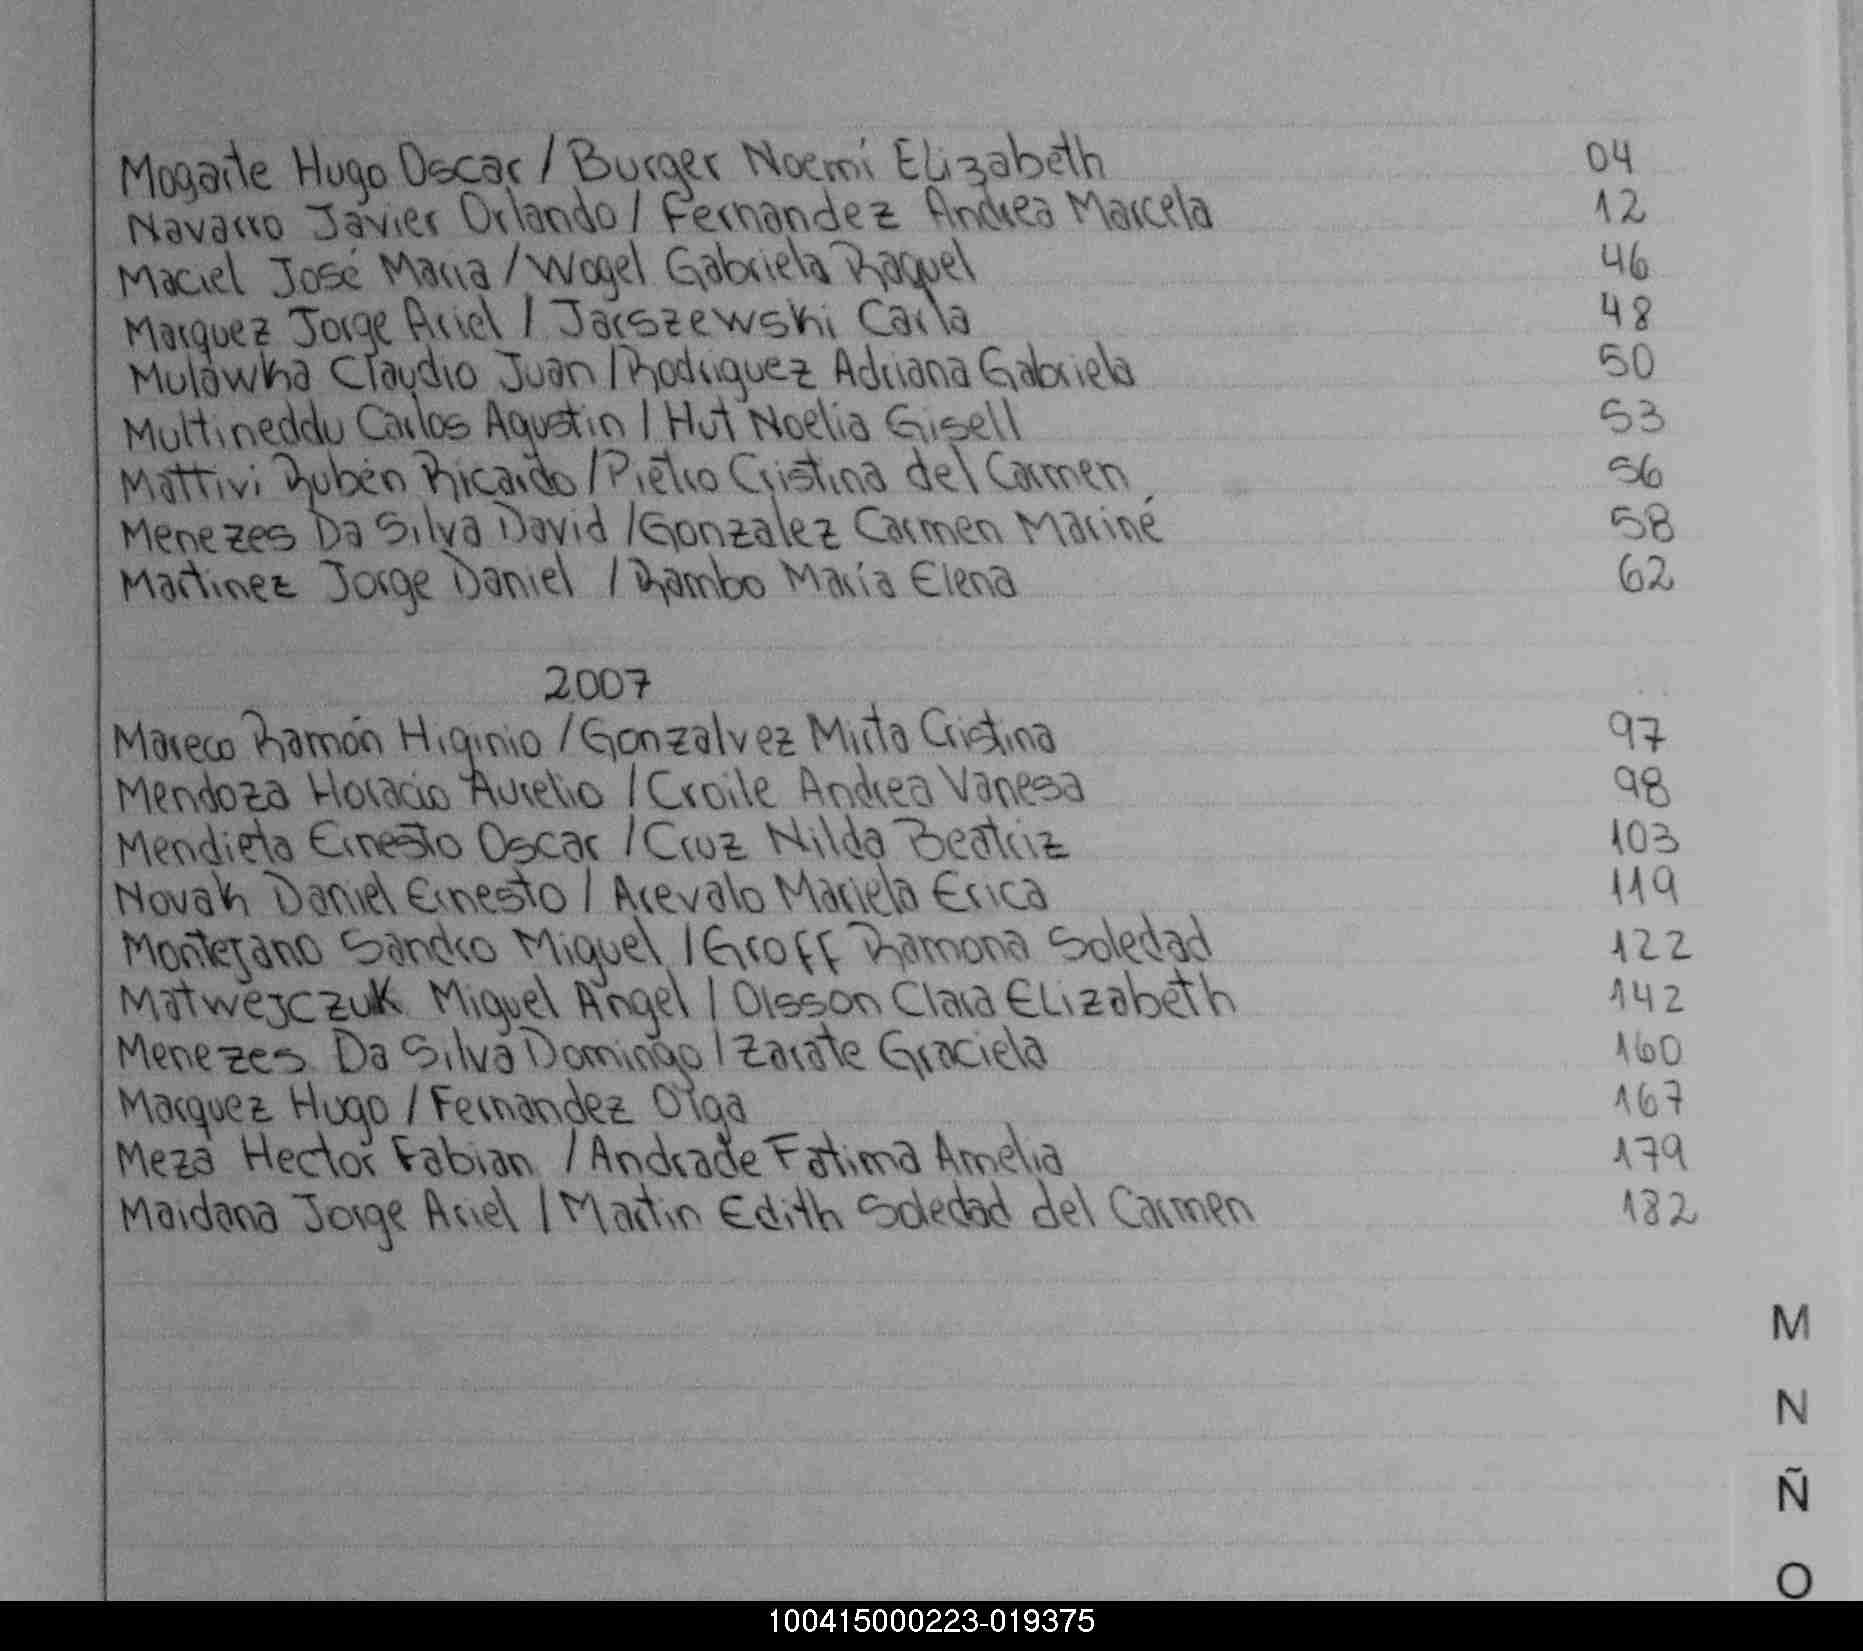 Mogarte Hugo Oscar / Burger Noemí Elizabeth 04
Navarro Javier Orlando / Fernandez Andrea Marcela 12
Maciel José Maria / Wogel Gabriela Raquel 46
Marquez Jorge Ariel / Jarszewski Carla 48
Mulawka Claudio Juan / Rodriguez Adriana Gabriela 50
Multineddu Carlos Agustin / Hut Noelia Gisell 53
Mattivi Rubén Ricardo / Pietro Cristina del Carmen 56
Menezes Da Silva David / Gonzalez Carmen Mariné 58
Martinez Jorge Daniel / Rambo María Elena 62
2007
Mareco Ramón Higinio / Gonzalvez Mirta Cristina 97
Mendoza Horacio Aurelio / Croile Andrea Vanesa 98
Mendieta Ernesto Oscar / Cruz Nilda Beatriz 103
Novak Daniel Ernesto / Arevalo Mariela Erica 119
Montejano Sandro Miguel / Groff Ramona Soledad 122
Matwejczuk Miguel Angel / Olsson Clara Elizabeth 142
Menezes Da Silva Domingo / Zarate Graciela 160
Marquez Hugo / Fernandez Olga 167
Meza Hector Fabian / Andrade Fatima Amelia 179
Maidana Jorge Ariel / Martin Edith Soledad del Carmen 182
M
N
Ñ
O
100415000223-019375